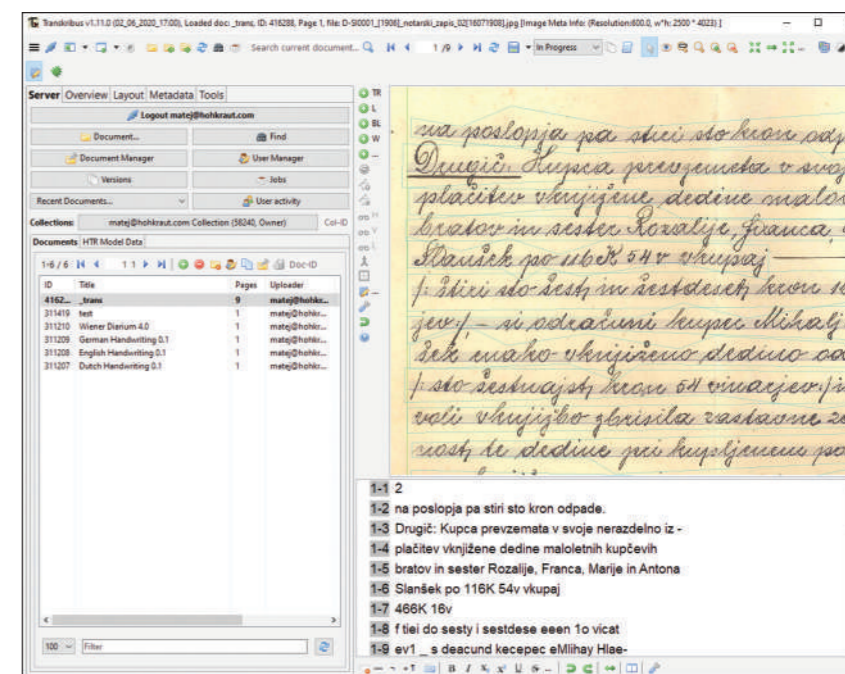 Transkribus v1.11.0 (02_06_2020_17:00), Loaded doc: _trans, ID: 416288, Page 1, file: D-SI0001_[1908]_notarski_zapis_02[16071908].jpg [Image Meta Info: (Resolution:600.0, w*h: 2500 * 4023) ]
Search current document... 1 /9 In Progress
Server Overview Layout Metadata Tools
Logout matej@hohkraut.com
Document... Find
Document Manager User Manager
Versions Jobs
Recent Documents... User activity
Collections: matej@hohkraut.com Collection (58240, Owner) Col-ID
Documents HTR Model Data
1-6 / 6 1 1 Doc-ID
ID Title Pages Uploader
4162... _trans 9 matej@hohkr...
311419 test 1 matej@hohkr...
311210 Wiener Diarium 4.0 1 matej@hohkr...
311209 German Handwriting 0.1 1 matej@hohkr...
311208 English Handwriting 0.1 1 matej@hohkr...
311207 Dutch Handwriting 0.1 1 matej@hohkr...
100 Filter
TR
L
BL
W
...
H
V
L
na poslopja pa stiri sto kron odp
Drugič: Kupca prevzemeta v svoj
plačitev vknjižene dedine malol
bratov in sester Rozalije, Franca,
Slanšek po 116K 54v vkupaj
/: štiri sto šest in šestdeset kron
jev:/ – si odračuni kupec Mihalj
šek enako vknjiženo dedino od
/: sto šestnajst kron 54 vinarjev:/
voli vknjižbo zbrisila zastavne
nost te dedine pri kupljenem po
1-1 2
1-2 na poslopja pa stiri sto kron odpade.
1-3 Drugič: Kupca prevzemata v svoje nerazdelno iz -
1-4 plačitev vknjižene dedine maloletnih kupčevih
1-5 bratov in sester Rozalije, Franca, Marije in Antona
1-6 Slanšek po 116K 54v vkupaj
1-7 466K 16v
1-8 f tiei do sesty i sestdese eeen 1o vicat
1-9 ev1 _ s deacund kecepec eMlihay Hlae-